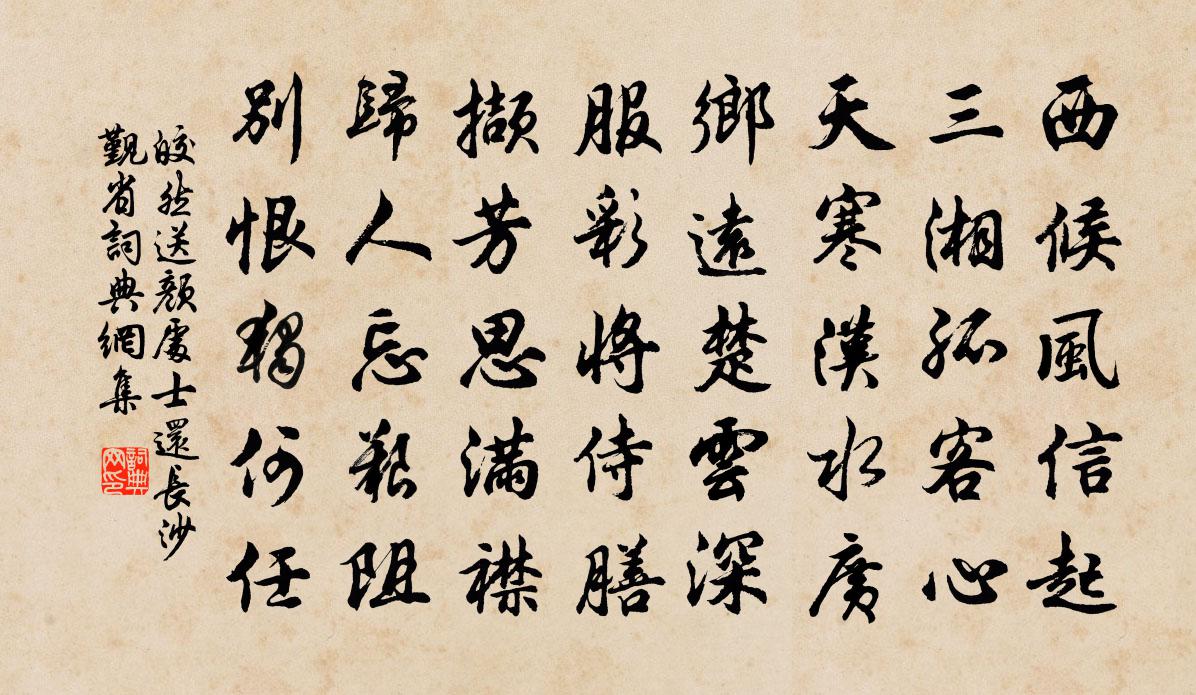 西候風信起
三湘孤客心
天寒漢水廣
鄉遠楚雲深
服彩將侍膳
擷芳思滿襟
歸人忘艱阻
別恨獨何任
皎然送顏處士還長沙
觀省詞典網集
詞典
网印